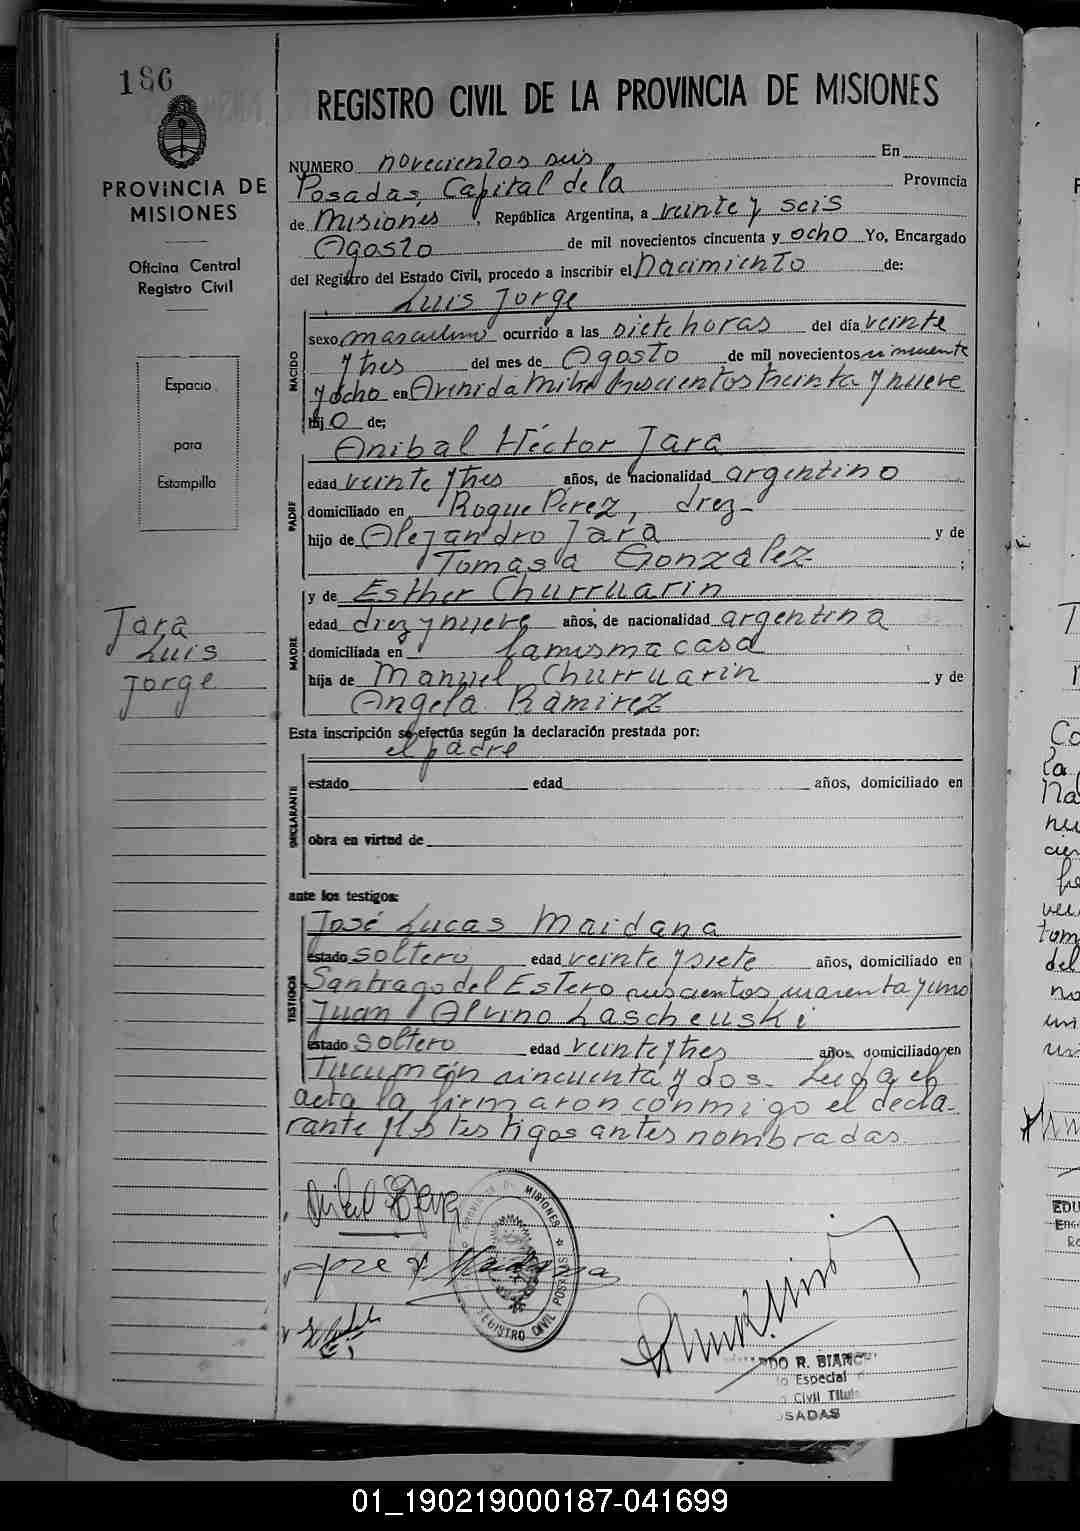 186
PROVINCIA DE
MISIONES
Oficina Central
Registro Civil
Espacio
para
Estampilla
Jara
Luis
Jorge
REGISTRO CIVIL DE LA PROVINCIA DE MISIONES
NUMERO novecientos seis En
Posadas, Capital de la Provincia
de Misiones, República Argentina, a veinte y seis
Agosto de mil novecientos cincuenta y ocho Yo, Encargado
del Registro del Estado Civil, procedo a inscribir el Nacimiento de:
Luis Jorge
NACIDO
sexo masculino ocurrido a las siete horas del día veinte
y tres del mes de Agosto de mil novecientos cincuenta
y ocho en Avenida Mitre trescientos treinta y nueve
hijo de;
Anibal Héctor Jara
PADRE
edad veinte y tres años, de nacionalidad argentino
domiciliado en Roque Pérez, diez-
hijo de Alejandro Jara y de
Tomasa González ;
y de Esther Churruarin
MADRE
edad diez y nueve años, de nacionalidad argentina
domiciliada en la misma casa
hija de Manuel Churruarin y de
Angela Ramirez
Esta inscripción se efectúa según la declaración prestada por:
el padre
DECLARANTE
estado edad años, domiciliado en
obra en virtud de
ante los testigos:
TESTIGOS
José Lucas Maidana
estado soltero edad veinte y siete años, domiciliado en
Santiago del Estero seiscientos cuarenta y uno
Juan Alvino Lascheuski
estado soltero edad veinte y tres años, domiciliado en
Tucumán cincuenta y dos. Leida el
acta la firmaron conmigo el decla-
rante y los testigos antes nombrados.
MISIONES
REGISTRO CIVIL POSADAS
Jose L Maidana
RDO R. BIANC
Especial
Civil Titula
SADAS
01_190219000187-041699